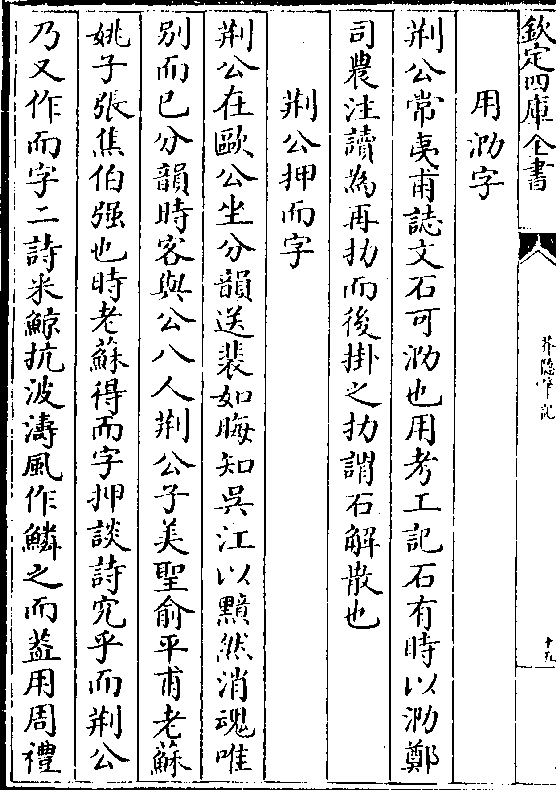 欽定四庫全書
芥隱筆記
十九
用泐字
荆公常夷甫誌文石可泐也用考工記石有時以泐鄭
司農注讀為再扐而後掛之扐謂石解散也
荆公押而字
荆公在歐公坐分韻送裴如晦知吳江以黯然消魂唯
别而已分韻時客與公八人荆公子美聖俞平甫老蘇
姚子張焦伯强也時老蘇得而字押談詩究乎而荆公
乃又作而字二詩采鲸抗波濤風作鱗之而葢用周禮